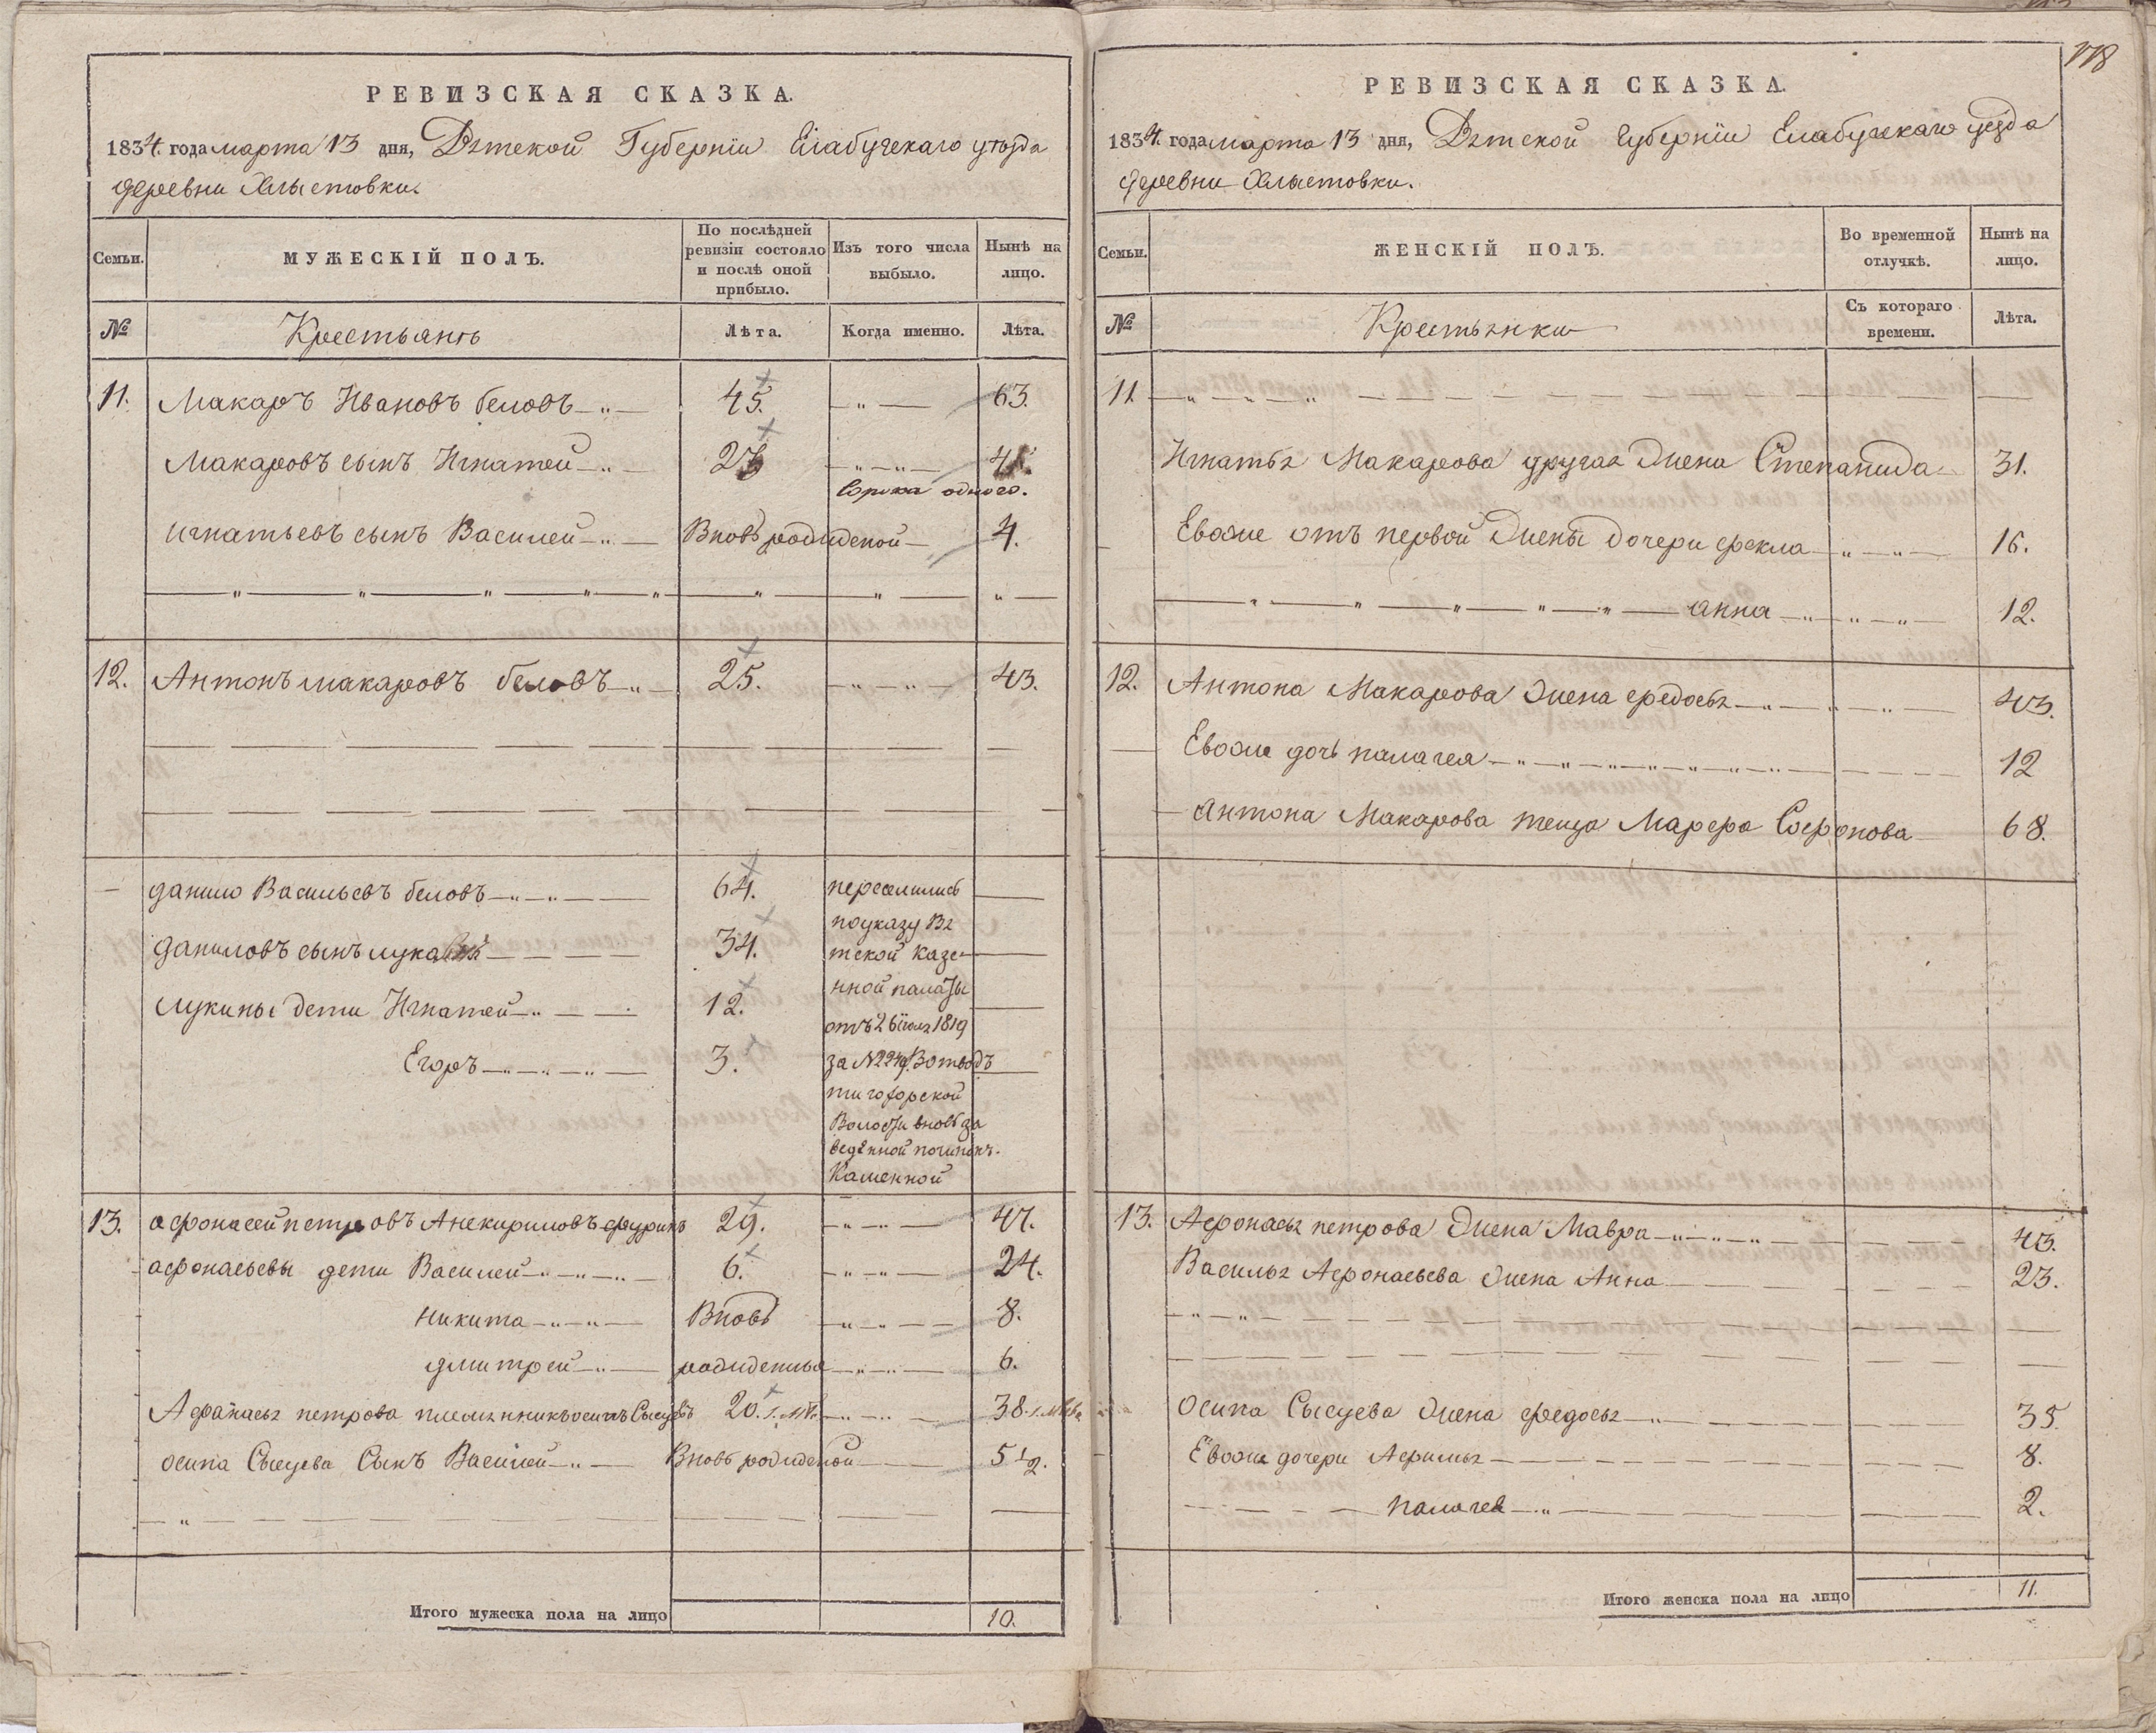 РЕВИЗСКАЯ СКАЗКА.
1834. года марта 13 дня, Вятской Губерніи Елабужскаго уѣзда
деревни Хлыстовки.
Семьи. МУЖЕСКІЙ ПОЛЪ. По послѣдней ревизіи состояло и послѣ оной прибыло. Изъ того числа выбыло. Нынѣ на лицо.
№ Крестьянъ Лѣта. Когда именно. Лѣта.
11. Макаръ Ивановъ беловъ 45. 63.
Макаровъ сынъ Игнатей 23 41.
Сорока одного.
игнатьевъ сынъ Василей Вновь рожденой 4.
12. Антонъ макаровъ беловъ 25. 43.
данило Васильевъ беловъ 64. переселились
по указу Вя
даниловъ сынъ лука 34. тской казе
нной палаты
лукины дети Игнатей 12.
отъ 26 іюля 1819
Егоръ 3. за №
Волости вновь за
веденной починокъ
Каменной
13. афонасей петровъ 29. 47.
афонасьевы дети Василей 6. 24.
никита Вновь 8.
дмитрей рожденныя 6.
Афанасья петрова племянникъ осипъ Сысуевъ 20. 38.
осипа Сысуева Сынъ Василей Вновь рожденой 5 1/2.
Итого мужеска пола на лицо 10.
118
РЕВИЗСКАЯ СКАЗКА.
1834. года марта 13 дня, Вятской Губерніи Елабужскаго уезда
деревни Хлыстовки.
Семьи. ЖЕНСКІЙ ПОЛЪ. Во временной отлучкѣ. Нынѣ на лицо.
№ Крестьянки Съ котораго времени. Лѣта.
11
Игнатья Макарова другая жена Степанида 31.
Евоже отъ первой жены дочери фекла 16.
анна 12.
12. Антона Макарова жена федосья 43.
Евоже дочь палагея 12
Антона Макарова теща Марфа Софонова 68.
13. Афонасья петрова жена Мавра 43.
Василья Афонасьева жена Анна 23.
Осипа Сысуева жена федосья 35.
Евоже дочери Афимья 8.
палагея 2.
Итого женска пола на лицо 11.